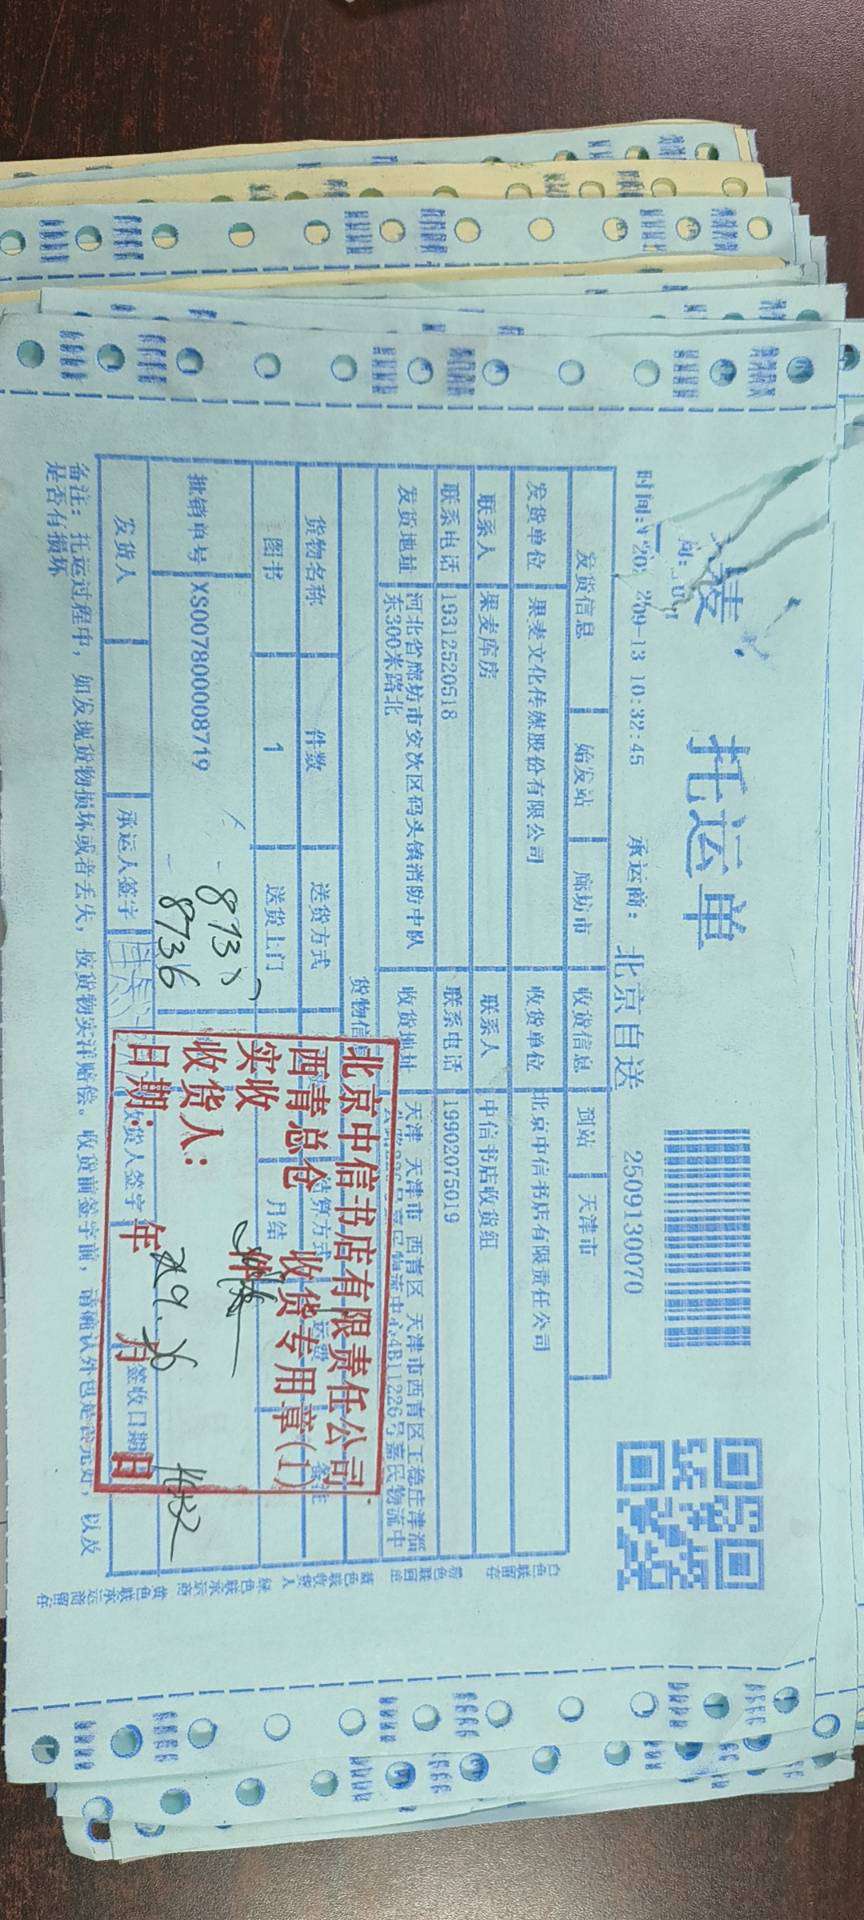 托运单
2509130070
09-13 10:32:45
承运商： 北京自送
发货信息 始发站 廊坊市 收货信息 到站 天津市
发货单位 果麦文化传媒股份有限公司 收货单位 北京中信书店有限责任公司
联系人 果麦库房 联系人 中信书店收货组
联系电话 19312520518 联系电话 19902075019
发货地址 河北省廊坊市安次区码头镇消防中队东300米路北 收货地址 天津 天津市 西青区 天津市西青区王
货物信
货物名称 件数 送货方式 结算方式 运费 备注
图书 1 送货上门 月结
批销单号 XS007800008719
8736
发货人 承运人签字 收货人签字 签收日期
北京中信书店有限责任公司
西青总仓 收货专用章(1)
实收 件
收货人：
日期： 年 月 日
备注： 托运过程中，如发现货物损坏或者丢失，按货物实洋赔偿。收货前签字前，请确认外包是否完好，以及
是否有损坏